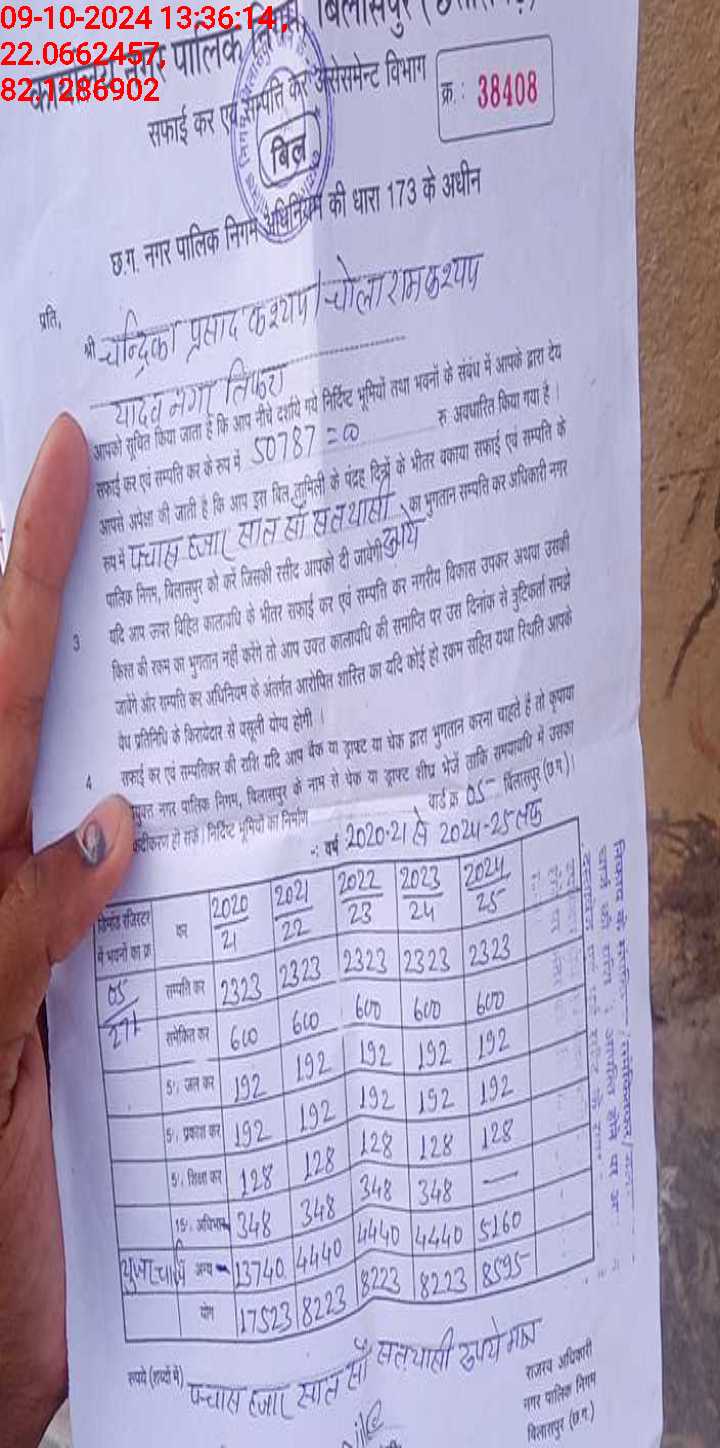 09-10-2024 13:36:14,
22.0662457,
82.1286902
कार्यालय नगर पालिक निगम, बिलासपुर
सफाई कर एवं सम्पत्ति कर असेसमेन्ट विभाग
क्र.: 38408
बिल
छ.ग. नगर पालिक निगम अधिनियम की धारा 173 के अधीन
प्रति,
श्री चन्द्रिका प्रसाद कश्यप / चोलाराम कश्यप
यादव नगर तिफरा
आपको सूचित किया जाता है कि आप नीचे दर्शाये गये निर्दिष्ट भूमियों तथा भवनों के संबंध में आपके द्वारा देय
सफाई कर एवं सम्पत्ति कर के रूप में 50787=00 रु अवधारित किया गया है।
आपसे अपेक्षा की जाती है कि आप इस बिल तामिली के पंद्रह दिनों के भीतर बकाया सफाई एवं सम्पति के
रूप में पच्चास हजार सात सौ सतयासी रूपये का भुगतान सम्पति कर अधिकारी नगर
पालिक निगम, बिलासपुर को करें जिसकी रसीद आपको दी जावेगी
3 यदि आप ऊपर विहित कालावधि के भीतर सफाई कर एवं सम्पति कर नगरीय विकास उपकर अथवा उसकी
किश्त की रकम का भुगतान नहीं करेंगे तो आप उक्त कालावधि की समाप्ति पर उस दिनांक से त्रुटिकर्ता समझे
जावेंगे और सम्पति कर अधिनियम के अंतर्गत आरोपित शास्ति का यदि कोई हो रकम सहित यथा स्थिति आपके
वैध प्रतिनिधि के किरायेदार से वसूली योग्य होगी।
4 सफाई कर एवं सम्पतिकर की राशि यदि आप बैंक या ड्राफ्ट या चेक द्वारा भुगतान करना चाहते हैं तो कृपया
नगर पालिक निगम, बिलासपुर के नाम से चेक या ड्राफ्ट शीघ्र भेजें ताकि समयावधि में उसका
हो सके। निर्दिष्ट भूमियों का निर्माण वार्ड क्र 05 बिलासपुर (छ.ग.)।
-: वर्ष 2020-21 से 2024-25 तक
डिमांड रजिस्टर में भवनों का क्र कर 2020/21 2021/22 2022/23 2023/24 2024/25
05/277 सम्पति कर 2323 2323 2323 2323 2323
समेकित कर 600 600 600 600 600
5%, जल कर 192 192 192 192 192
5%, प्रकाश कर 192 192 192 192 192
5%, शिक्षा कर 128 128 128 128 128
15%, अधिभार 348 348 348 348 —
अन्य 13740 4440 4440 4440 5160
योग 17523 8223 8223 8223 8595
रूपये (शब्दों में) पच्चास हजार सात सौ सतयासी रुपये मात्र
राजस्व अधिकारी
नगर पालिक निगम
बिलासपुर (छ.ग.)